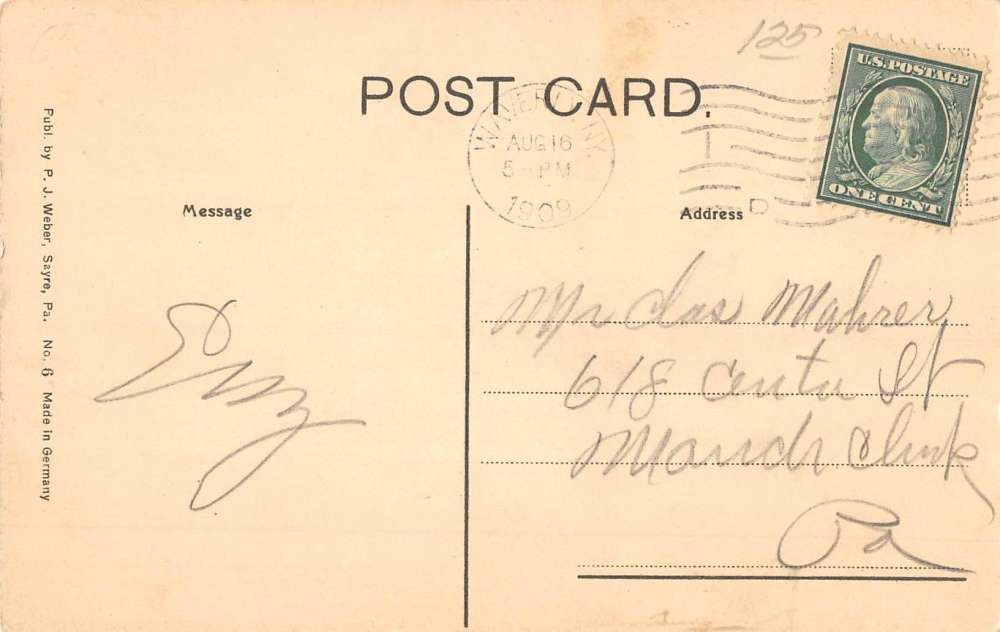 125
POST CARD.
U.S. POSTAGE
ONE CENT
WAVERLY, N.Y.
AUG 16
5 - PM
1909
D
Message
Address
Mr Chas Mahrer
618 Center St
Mauch Chunk
Pa
Publ. by P. J. Weber, Sayre, Pa. No. 6 Made in Germany